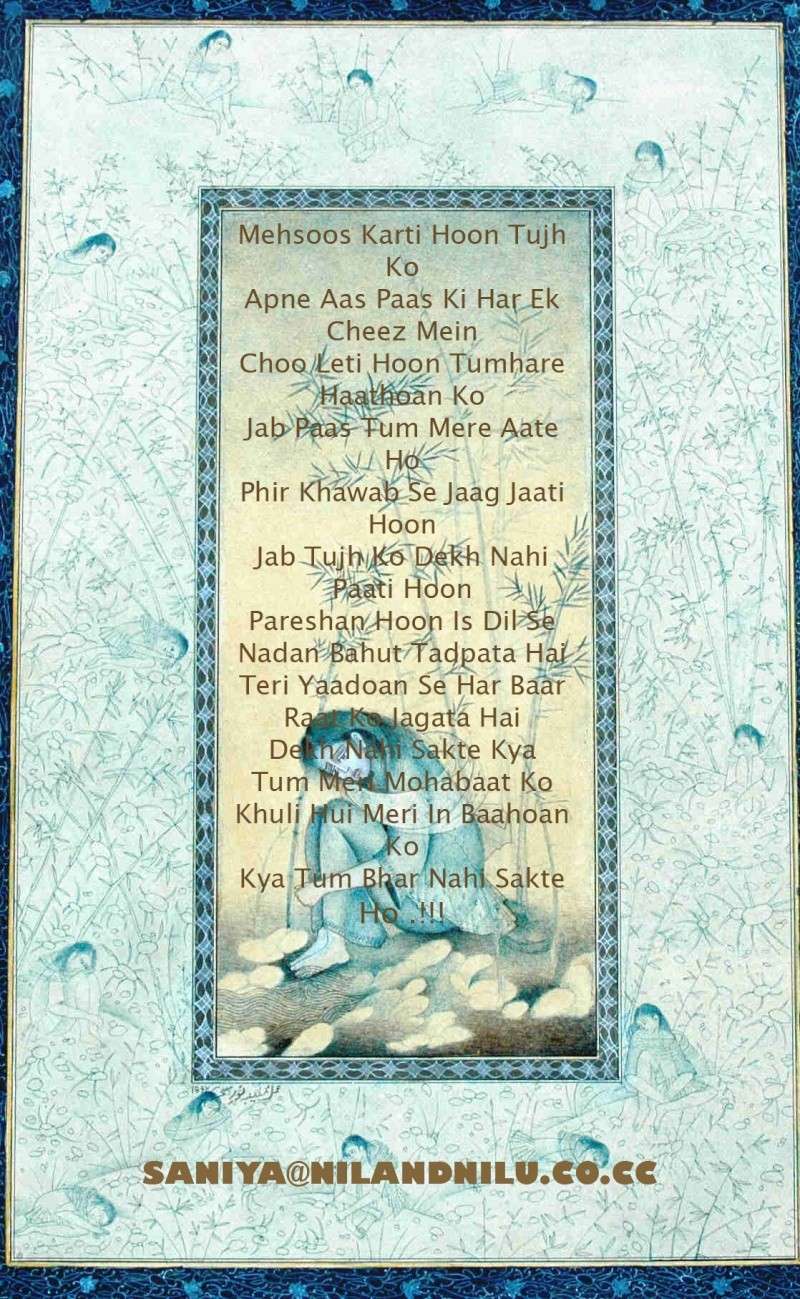 Mehsoos Karti Hoon Tujh
Ko
Apne Aas Paas Ki Har Ek
Cheez Mein
Choo Leti Hoon Tumhare
Haathoan Ko
Jab Paas Tum Mere Aate
Ho
Phir Khawab Se Jaag Jaati
Hoon
Jab Tujh Ko Dekh Nahi
Paati Hoon
Pareshan Hoon Is Dil Se
Nadan Bahut Tadpata Hai
Teri Yaadoan Se Har Baar
Raat Ko Jagata Hai
Dekh Nahi Sakte Kya
Tum Meri Mohabaat Ko
Khuli Hui Meri In Baahoan
Ko
Kya Tum Bhar Nahi Sakte
Ho .!!!
SANIYA@NILANDNILU.CO.CC